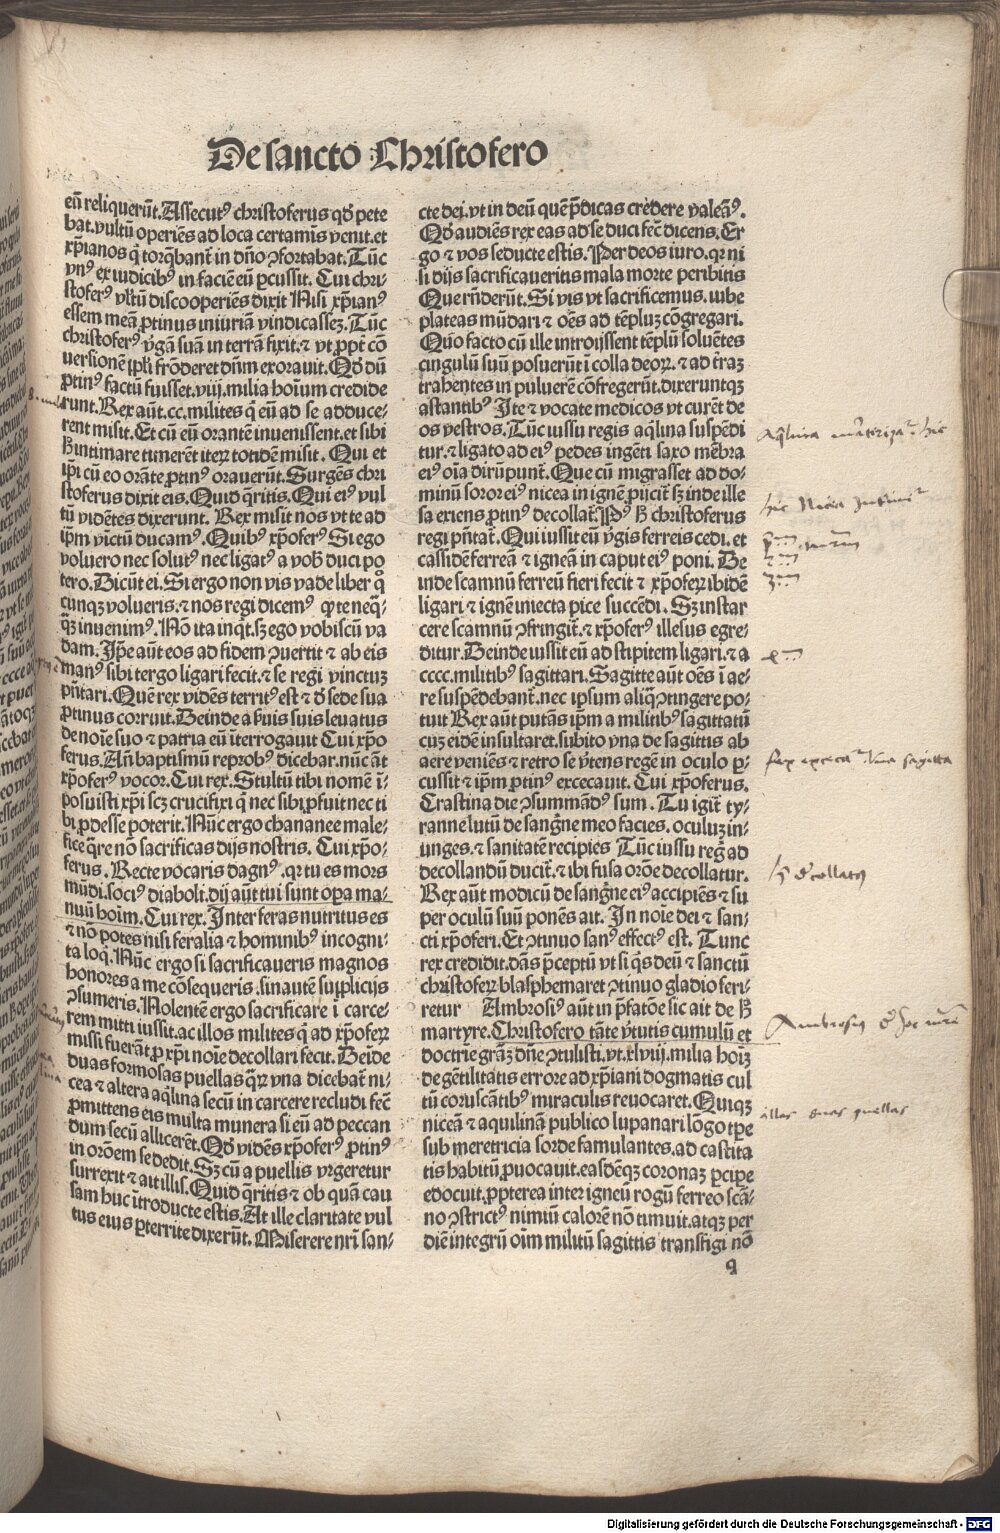 De sancto Christofero
eū reliquerūt. Assecutꝰ christoferus qđ pete
bat. vultū operiēs ad loca certamīs venit. et
xp̄ianos q̄ torq̄bant̄ in dn̄o ꝯfortabat. Tūc
vnꝰ ex iudicibꝰ in faciē eū ꝑcussit. Cui chri-
stoferꝰ vl̄tū discooperiēs dixit Nisi xp̄ianꝰ
essem meā ꝓtinus iniuriā vindicasseꝫ. Tūc
christoferꝰ v̄gā suā in terrā fixit. ⁊ vt ꝓpt̄ cō
uersionē ip̄oꝝ frōderet dn̄m exorauit. Qđ dū
ꝓtinꝰ factū fuisset. viij. milia hoīum credide
runt. Rex aūt. cc. milites q̄ eū ad se adduce-
rent misit. Et cū eū orantē inuenissent. et sibi
ꝫ intimare timerēt iteꝝ totidē misit. Qui et
ip̄i cū eo orāte ꝓtinꝰ orauerūt. Surgēs chri
stoferus dixit eis. Quid q̄ritis. Qui eiꝰ vul
tū vidētes dixerunt. Rex misit nos vt te ad
ip̄m vīctū ducamꝰ. Quibꝰ xp̄oferꝰ Si ego
voluero nec solutꝰ nec ligatꝰ a vob̄ duci po
tero. Dicūt ei. Si ergo non vis vade liber q̊
cunqꝫ volueris. ⁊ nos regi dicemꝰ q̄ te neq̄-
q̄ꝫ inuenimꝰ. Nō ita inq̄t. sꝫ ego vobiscū va
dam. Ip̄e aūt eos ad fidem ꝯuertit ⁊ ab eis
manꝰ sibi tergo ligari fecit. ⁊ se regi vinctuꝫ
p̄ntari. Quē rex vidēs territꝰ est ⁊ đ sede sua
ꝓtinus corruit. Deinde a ẜuis suis leuatus
de noīe suo ⁊ patria eū īterrogauit Cui xp̄o
ferus. Añ baptismū reprobꝰ dicebar. nūc āt
xp̄oferꝰ vocor. Cui rex. Stultū tibi nomē ī-
posuisti xp̄i scꝫ crucifixi q̄ nec sibi ꝓfuit nec ti
bi ꝓdesse poterit. Nūc ergo chananee male-
fice q̄re nō sacrificas dijs nostris. Cui xp̄o-
ferus. Recte vocaris dagnꝰ. qꝛ tu es mors
mūdi. sociꝰ diaboli. dij aūt tui sunt oꝑa ma-
nuū hoīm. Cui rex. Inter feras nutritus es
⁊ nō potes nisi feralia ⁊ hominibꝰ incogni-
ta loq̄. Nūc ergo si sacrificaueris magnos
honores a me cōsequeris. sinautē supplicijs
ꝯsumeris. Nolentē ergo sacrificare ī carce-
rem mitti iussit. ac illos milites q̄ ad xp̄oferꝝ
missi fuerāt ꝓ xp̄i noīe decollari fecit. Deīde
duas formosas puellas q̄ꝝ vna dicebat̄ ni-
cea ⁊ altera aq̄lina secū in carcere recludi fec̄
ꝓmittens eis multa munera si eū ad peccan
dum secū allicerēt. Qđ vidēs xp̄oferꝰ ꝓtinꝰ
in orōem se dedit. Sꝫ cū a puellis vrgeretur
surrexit ⁊ ait illis. Quid q̄ritis ⁊ ob quā cau
sam huc ītroducte estis. At ille claritate vul
tus eius ꝑterrite dixerūt. Miserere nr̄i san-
cte dei. vt in deū quē p̄dicas credere valeāꝰ.
Qđ audiēs rex eas ad se duci fec̄ dicens. Er
go ⁊ vos seducte estis. Per deos iuro. qꝛ ni
si dijs sacrificaueritis mala morte peribitis
Que rn̄derūt. Si vis vt sacrificemus. iube
plateas mūdari ⁊ oēs ad tēpluꝫ cōgregari.
Quo facto cū ille introijssent tēplū soluētes
cingulū suū posuerūt ī colla deoꝝ. ⁊ ad t̄raꝫ
trahentes in puluerē cōfregerūt. dixeruntqꝫ
astantibꝰ Ite ⁊ vocate medicos vt curēt de
os vestros. Tūc iussu regis aq̄lina suspēdi
tur. ⁊ ligato ad eiꝰ pedes ingēti saxo mēbra
eiꝰ oīa dirūpunt̄. Que cū migrasset ad do-
minū soror eiꝰ nicea in ignē ꝓijcit̄ sꝫ inde ille
sa exiens ꝓtinꝰ decollat̄. Pꝰ ꝫ christoferus
regi p̄ntat̄. Qui iussit eū v̄gis ferreis cedi. et
cassidē ferreā ⁊ igneā in caput eiꝰ poni. De
inde scamnū ferreū fieri fecit ⁊ xp̄oferꝝ ibidē
ligari ⁊ ignē iniecta pice succēdi. Sꝫ instar
cere scamnū ꝯfringit̄. ⁊ xp̄oferꝰ illesus egre-
ditur. Deinde iussit eū ad stipitem ligari. ⁊ a
cccc. militibꝰ sagittari. Sagitte aūt oēs ī ae-
re suspēdebant̄. nec ipsum aliq̄ ꝯtingere po-
tuit Rex aūt putās ip̄m a militibꝰ sagittatū
cuꝫ eidē insultaret. subito vna de sagittis ab
aere veniēs ⁊ retro se v̄tens regē in oculo ꝑ-
cussit ⁊ ip̄m ꝓtinꝰ excecauit. Cui xp̄oferus.
Crastina die ꝯsummādꝰ sum. Tu igit̄ ty-
ranne lutū de sangn̄e meo facies. oculuꝫ in-
unges. ⁊ sanitatē recipies Tūc iussu reḡ ad
decollandū ducit̄. ⁊ ibi fusa orōne decollatur.
Rex aūt modicū de sangn̄e eiꝰ accipiēs ⁊ su
per oculū suū ponēs ait. In noīe dei ⁊ san-
cti xp̄oferi. Et ꝯtinuo sanꝰ effectꝰ est. Tunc
rex credidit. dās p̄ceptū vt si q̄s deū ⁊ sanctū
christoferꝝ blasphemaret ꝯtinuo gladio feri-
retur Ambrosiꝰ aūt in p̄fatōe sic ait de ꝫ
martyre. Christofero tāte v̄tutis cumulū et
doctrīe grāꝫ dn̄e ꝯtulisti. vt. xlviij. milia hoīꝫ
de gētilitatis errore ad xp̄iani dogmatis cul
tū coruscātibꝰ miraculis reuocaret. Quiqꝫ
niceā ⁊ aquilinā publico lupanari lōgo tꝑe
sub meretricia sorde famulantes. ad castita
tis habitū ꝓuocauit. easdēqꝫ coronaꝫ ꝑcipe
edocuit. ꝓpterea inter igneū rogū ferreo scā-
no ꝯstrictꝰ nimiū calorē nō timuit. atqꝫ per
diē integrū oīm militū sagittis transfigi nō
q
Ambrosiꝰ
illas duas puellas